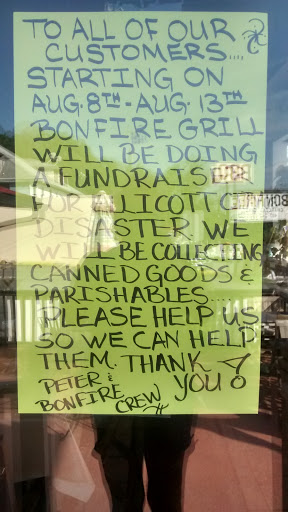 TO ALL OF OUR
CUSTOMERS....
STARTING ON
AUG. 8TH - AUG. 13TH
BONFIRE GRILL
WILL BE DOING
A FUNDRAISER
FOR ELLICOTT C
DISASTER. WE
WILL BE COLLECTING
CANNED GOODS &
PARISHABLES....
PLEASE HELP US
SO WE CAN HELP
THEM. THANK
YOU!
PETER &
BONFIRE
CREW